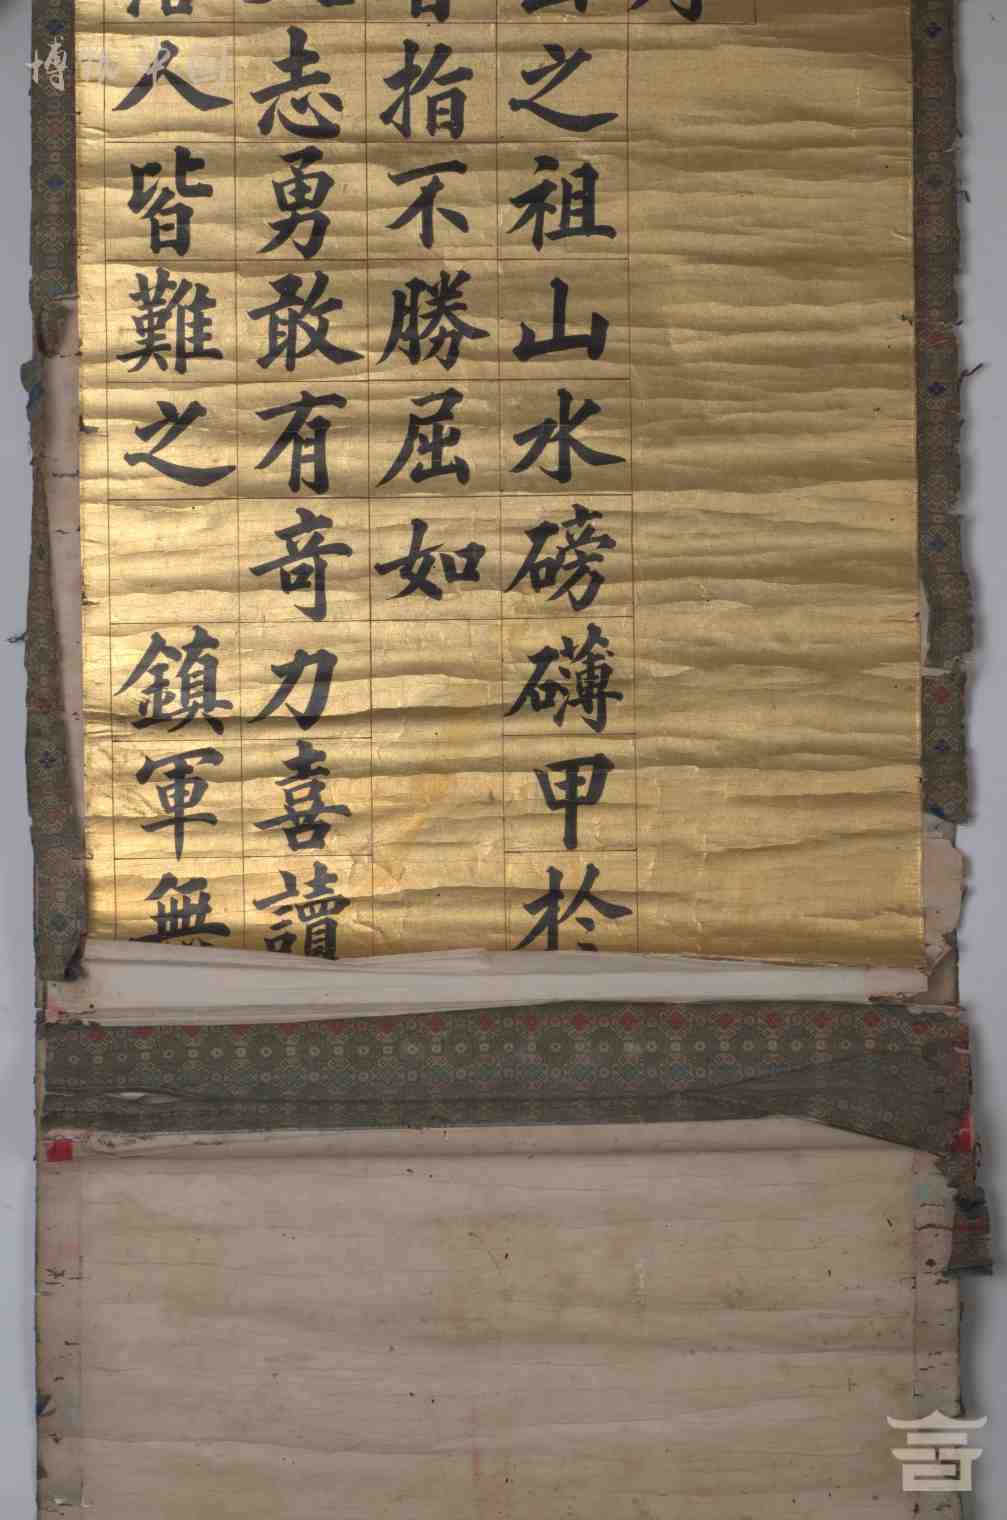 之祖山水磅礴甲於
指不勝屈如
志勇敢有奇力喜讀
人皆難之 鎮軍無